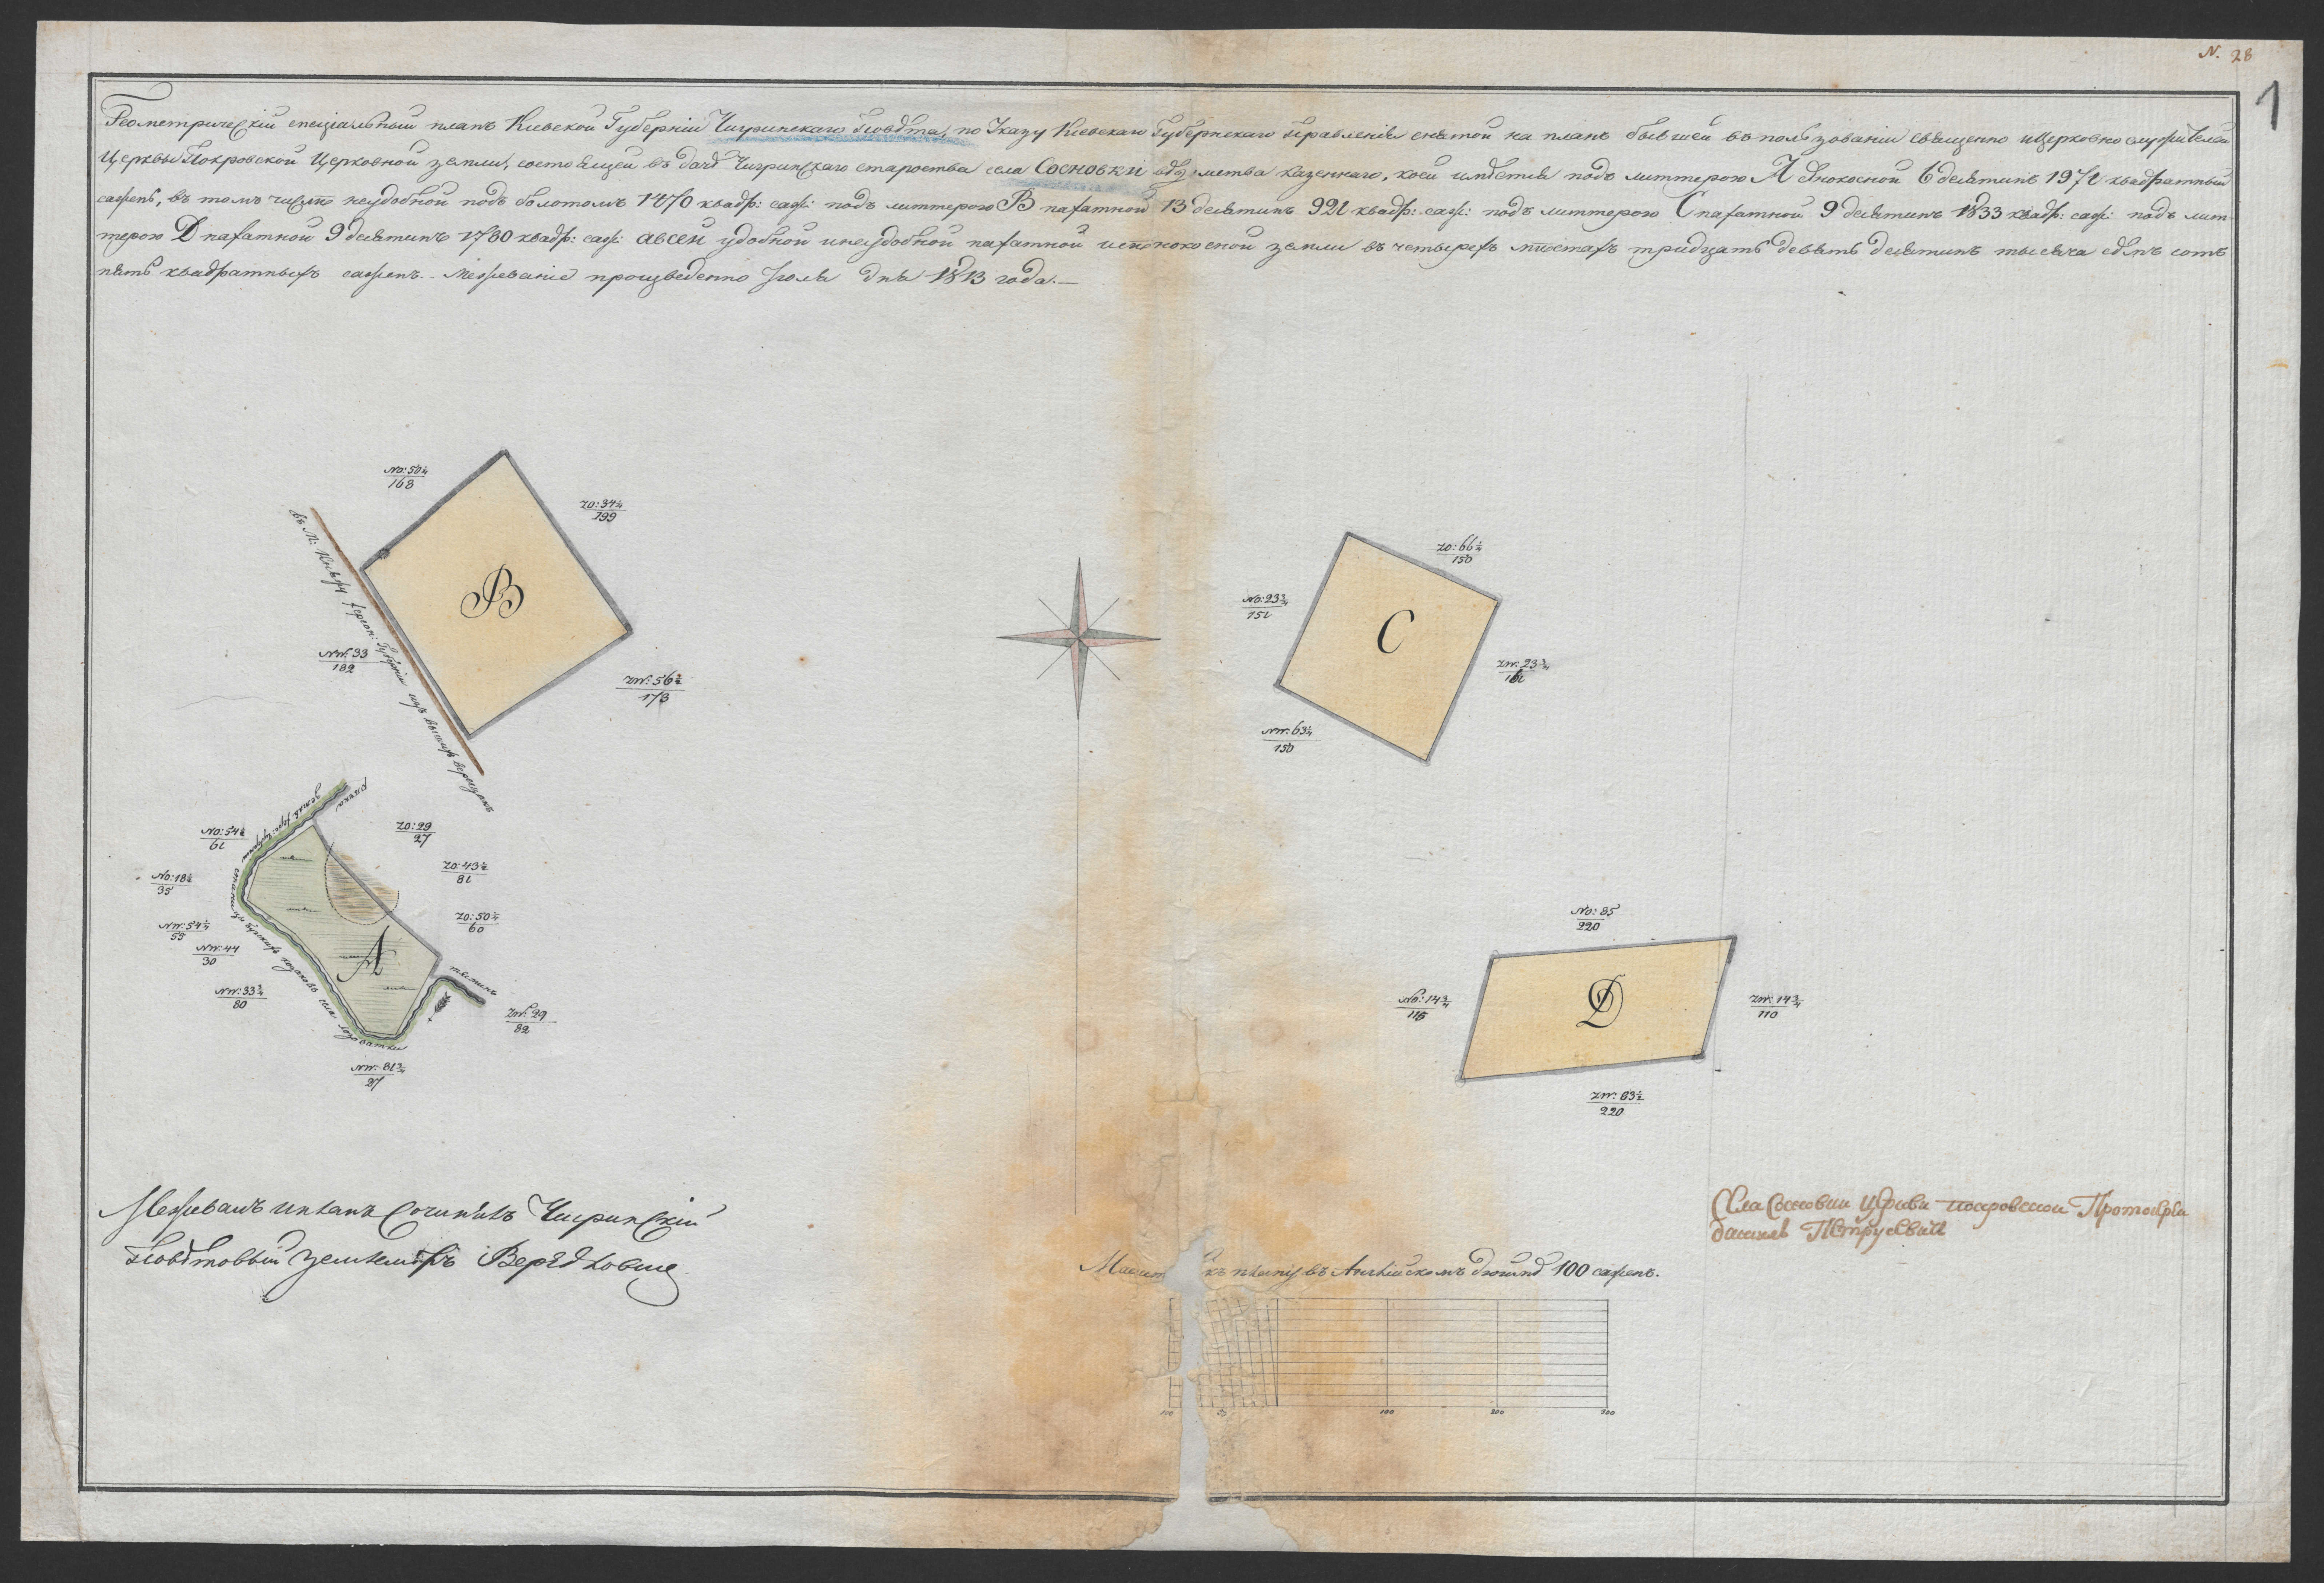 N. 28
1
Геометрический специальный планъ Киевской Губернiи Чигринскаго Повѣта, по Указу Киевскаго Губернскаго Правленiя снятой на планъ бывшей въ пользованiи священно и церковно служителей
Церквы Покровской Церковной земли, состоящей въ дачѣ Чигринскаго староства села Сосновки вѣдомства казеннаго, коей имѣется подъ литтерою А сѣнокосной 6 десятинъ 1971 квадратный
сажень, въ томъ числѣ неудобной подъ болотомъ 1470 квадр: саж: подъ литтерою В пахатной 13 десятинъ 921 квадр: саж: подъ литтерою С пахатной 9 десятинъ 1833 квадр: саж: подъ лит-
терою D пахатной 9 десятинъ 1780 квадр: саж: а всей удобной и неудобной пахатной и сенокосной земли въ четырехъ мѣстахъ тридцать девять десятинъ тысяча сѣмъ сотъ
пять квадратныхъ сажень. Межеванiе произведенно Iюля дня 1813 года.—
No: 50¼
168
zo: 34¼
199
B
NW: 33
182
zw: 56½
173
zo: 66½
150
No: 23¾
151
C
zw: 23¾
161
NW: 63¼
150
рѣчка
No: 54½
61
zo: 29
27
zo: 43½
81
No: 18½
35
zo: 50¼
60
NW: 54¼
55
NW: 44
30
A
NW: 33¾
80
тясминъ
zw: 29
82
NW: 81¾
27
No: 85
220
No: 14¾
115
D
zw: 14¾
110
zw: 83½
220
Межевалъ и планъ Сочинилъ Чигринскiй
Повѣтовый Землемѣръ
Села Сосновки Церкви покровской Протоiерей
Петрусевичь
въ Англiйскомъ дюймѣ 100 сажень.
100
200
300